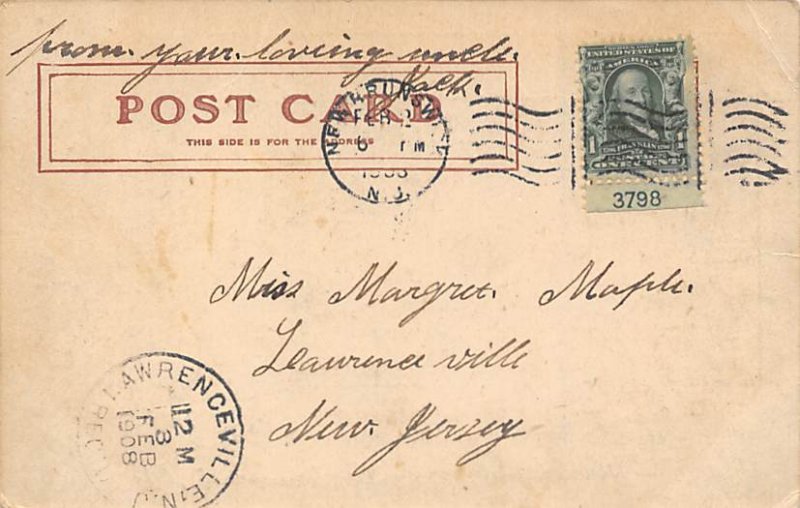 from. your. loving uncle.
POST CARD
THIS SIDE IS FOR THE ADDRESS
NEW BRUNSWI
FEB
6 PM
N.J.
SERIES 1902
UNITED STATES OF
AMERICA
1 1
FRANKLIN
ONE CENT
3798
Miss Margret. Maple.
Lawrence ville
New. Jersey
LAWRENCEVILLE, N.J.
REC'D
112 M
3
FEB
1908